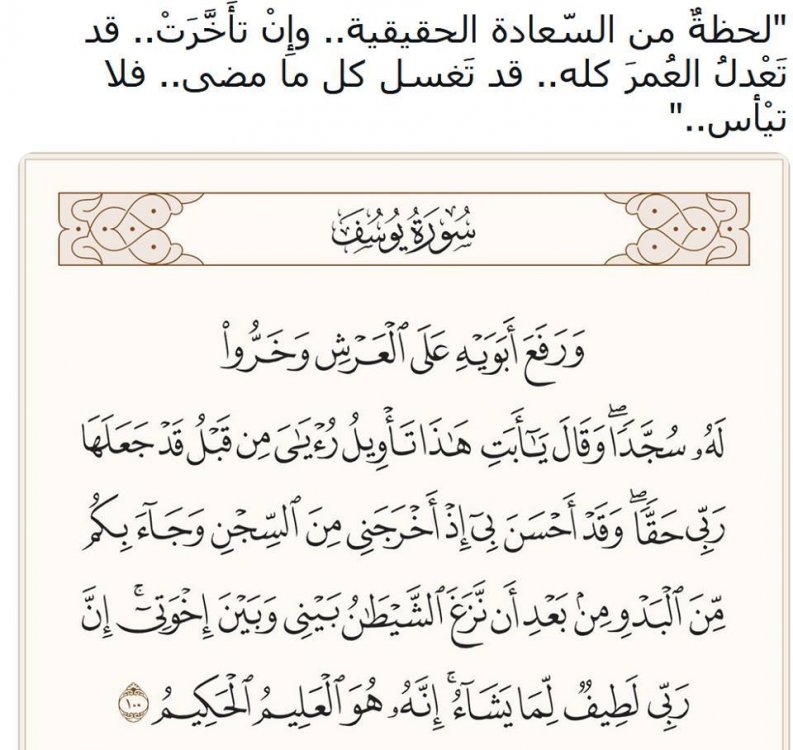 "لحظةٌ من السّعادة الحقيقية.. وإنْ تأَخَّرَتْ.. قد
تَعْدلُ العُمرَ كله.. قد تَغسل كل ما مضى.. فلا
تيْأس.."
سُورَةُ يُوسُفَ
وَرَفَعَ أَبَوَيْهِ عَلَى ٱلْعَرْشِ وَخَرُّوا۟
لَهُۥ سُجَّدًۭاۖ وَقَالَ يَٰٓأَبَتِ هَٰذَا تَأْوِيلُ رُءْيَٰىَ مِن قَبْلُ قَدْ جَعَلَهَا
رَبِّى حَقًّۭاۖ وَقَدْ أَحْسَنَ بِىٓ إِذْ أَخْرَجَنِى مِنَ ٱلسِّجْنِ وَجَآءَ بِكُم
مِّنَ ٱلْبَدْوِ مِنۢ بَعْدِ أَن نَّزَغَ ٱلشَّيْطَٰنُ بَيْنِى وَبَيْنَ إِخْوَتِىٓۚ إِنَّ
رَبِّى لَطِيفٌۭ لِّمَا يَشَآءُۚ إِنَّهُۥ هُوَ ٱلْعَلِيمُ ٱلْحَكِيمُ ١٠٠